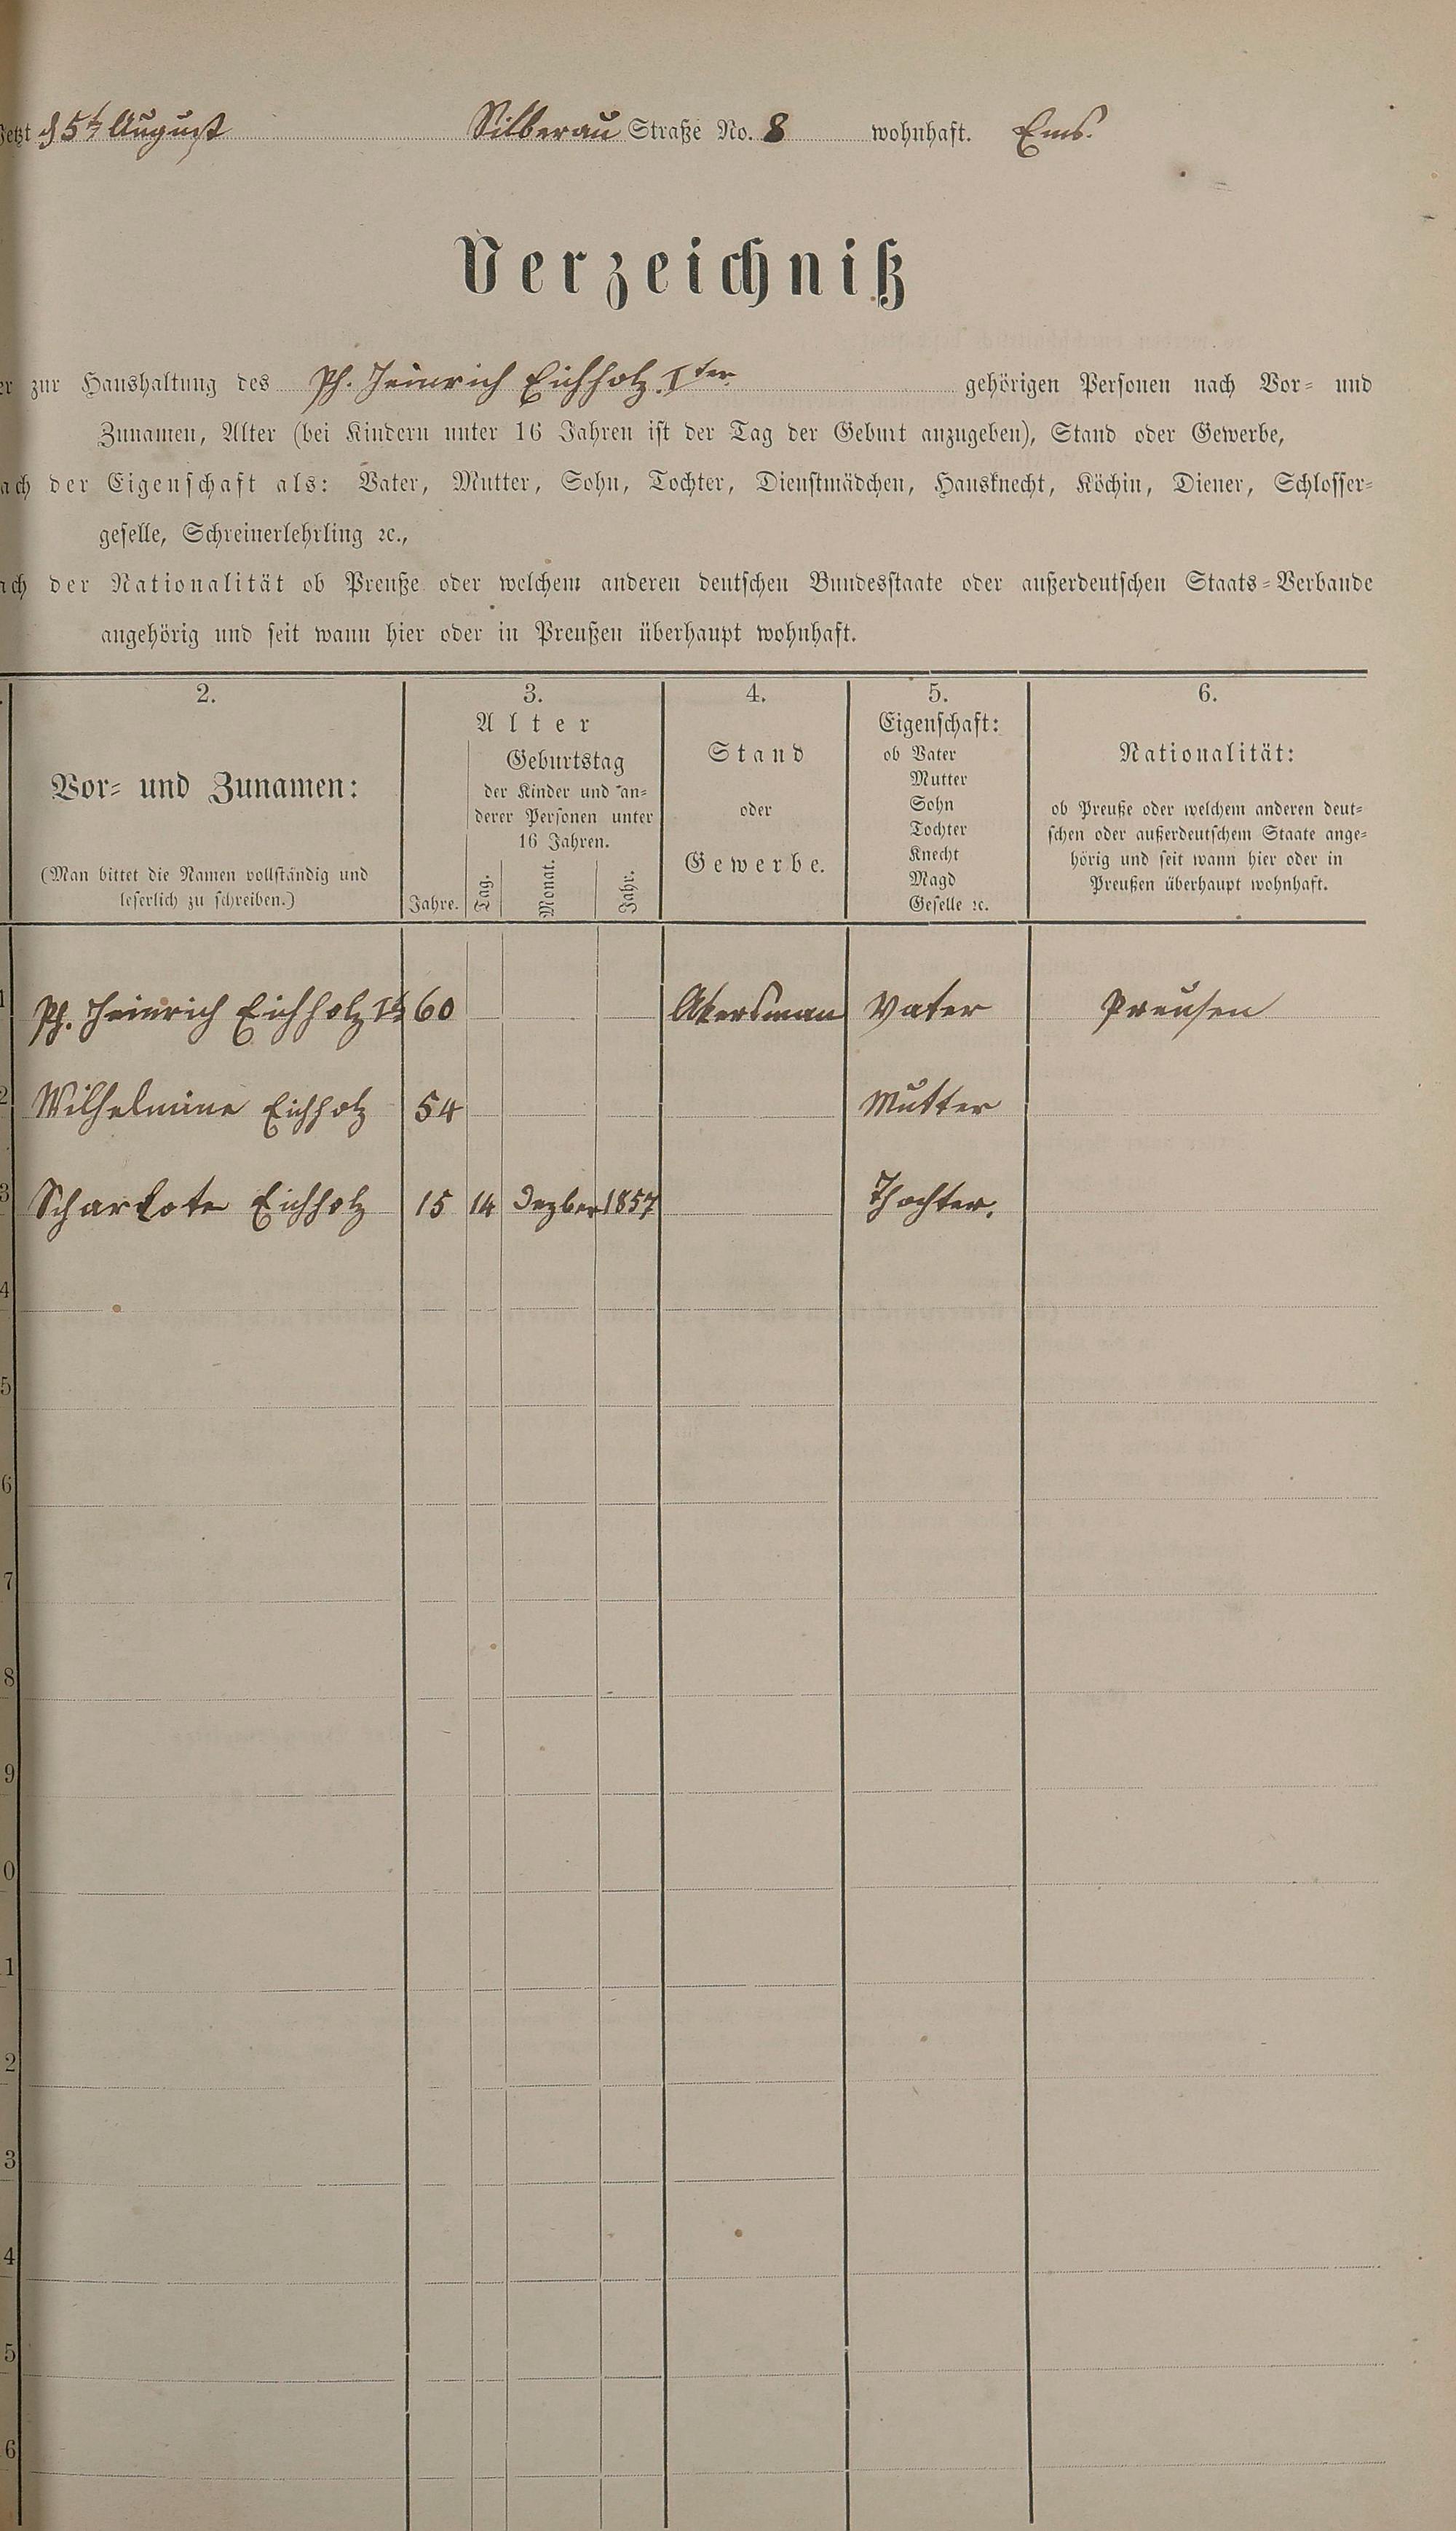 Jetzt d 5t August Silberau Straße No. 8 wohnhaft. Ems.
Verzeichniß
er zur Haushaltung des Ph. Heinrich Eichholz Iten gehörigen Personen nach Vor- und
Zunamen, Alter (bei Kindern unter 16 Jahren ist der Tag der Geburt anzugeben), Stand oder Gewerbe,
ach der Eigenschaft als: Vater, Mutter, Sohn, Tochter, Dienstmädchen, Hausknecht, Köchin, Diener, Schlosser-
geselle, Schreinerlehrling ꝛc.,
ach der Nationalität ob Preuße oder welchem anderen deutschen Bundesstaate oder außerdeutschen Staats-Verbande
angehörig und seit wann hier oder in Preußen überhaupt wohnhaft.
2. 3. 4. 5. 6.
Vor- und Zunamen:
(Man bittet die Namen vollständig und
leserlich zu schreiben.)
Alter
Jahre.
Geburtstag
der Kinder und an-
derer Personen unter
16 Jahren.
Tag. Monat. Jahr.
Stand
oder
Gewerbe.
Eigenschaft:
ob Vater
Mutter
Sohn
Tochter
Knecht
Magd
Geselle ꝛc.
Nationalität:
ob Preuße oder welchem anderen deut-
schen oder außerdeutschem Staate ange-
hörig und seit wann hier oder in
Preußen überhaupt wohnhaft.
1 Ph. Heinrich Eichholz 60 Akersman Vater Preusen
2 Wilhelmine Eichholz 54 Mutter
3 Scharlote Eichholz 15 14 Dezber 1857 Thochter.
4
5
6
7
8
9
0
1
2
3
4
5
6